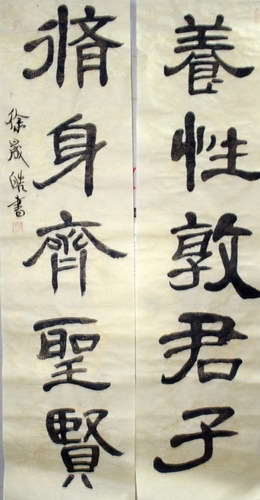 養性敦君子
脩身齊聖賢
徐晟皓書